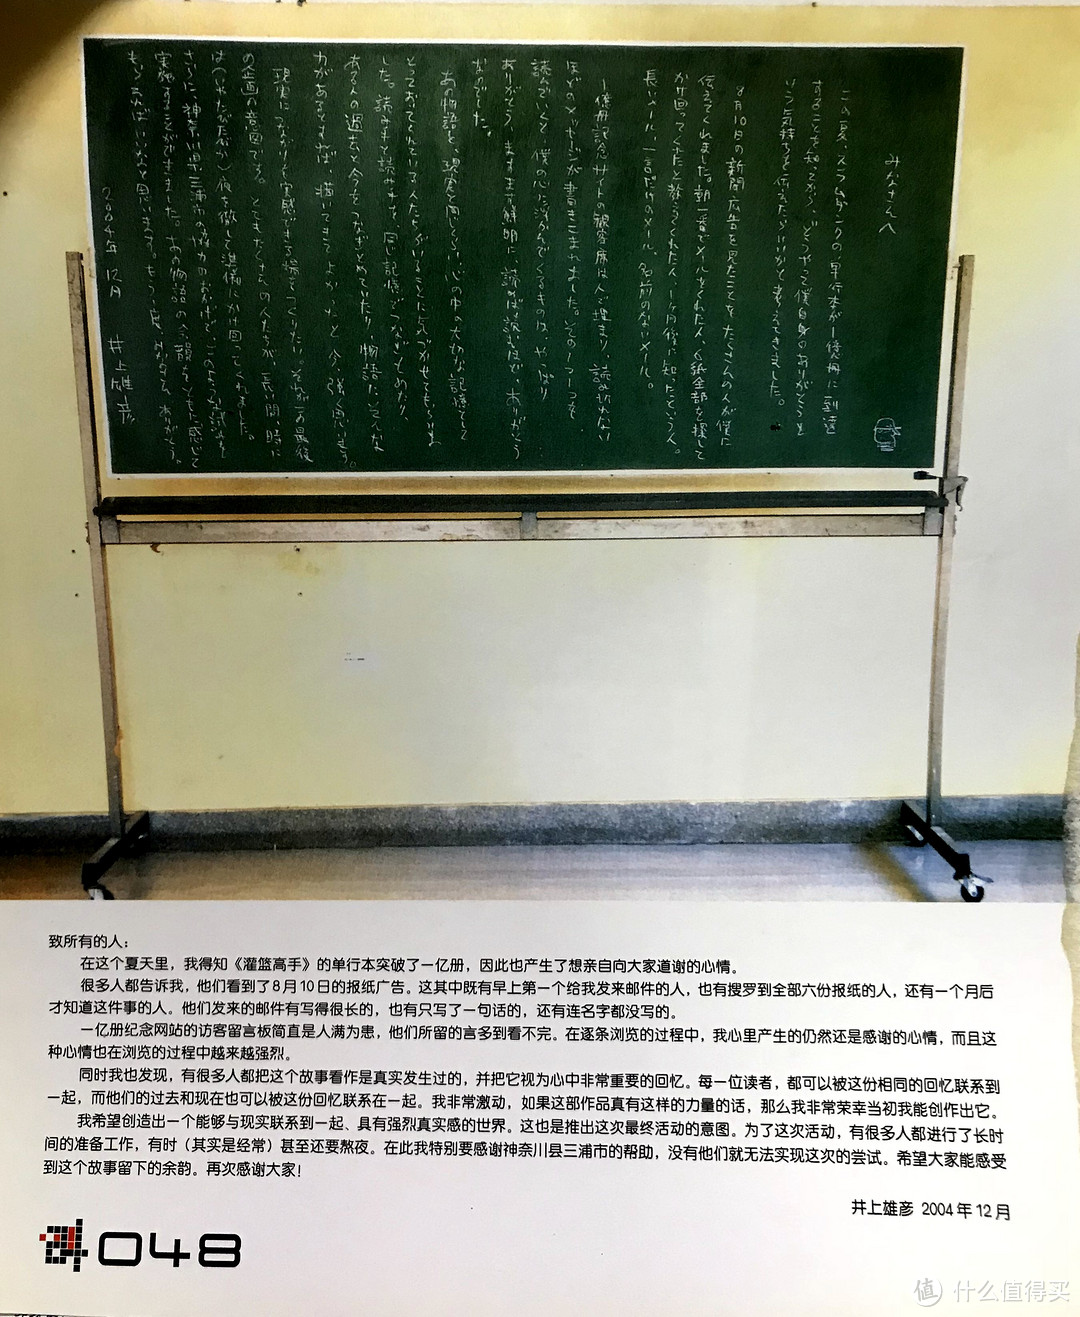 みなさんへ
この夏、スラムダンクの単行本が一億冊に到達
することを知ってから、どうやって僕自身のありがとうを
いう気持ちを伝えたらいいかと考えてきました。
8月10日の新聞広告を見たことをたくさんの人が僕に
伝えてくれました。朝一番でメイルをくれた人、6紙全部を探して
かけ回ってくれたと教えてくれた人、1ヶ月後に知ったという人。
長いメール、一言だけのメール、名前のないメール。
一億冊記念サイトの観客席は人で埋まり、読み切れない
ほどのメッセージが書きこまれました。その一つ一つを
読んでいくと、僕の心に浮かんでくるものは、やっぱり
ありがとう、ますます鮮明に、読めば読むほど、ありがとう
なのでした。
あの物語を、現実と同じくらい心の中の大切な記憶として
とっておいてくれている人たちがいることに気づかせてもらいま
した。読み手と読み手を、同じ記憶でつないで
ある人の過去と今をつなぎとめていたり、物語にそんな
力があるとすれば、描いてきてよかったと、今、強く思います。
現実につながりを実感できる場をつくりたい。それがこの最後
の企画の意図です。とてもたくさんの人たちが、長い間、時に
は(いやたびたびか)夜を徹して準備にかけ回ってくれました。
さらに、神奈川県三浦市の協力のおかげで、このたびの試みを
実施することができました。あの物語の余韻を、ともに感じて
もらえればいいなと思います。もう一度、みなさん、ありがとう。
2004年 12月 井上雄彦
致所有的人：
在这个夏天里，我得知《灌篮高手》的单行本突破了一亿册，因此也产生了想亲自向大家道谢的心情。
很多人都告诉我，他们看到了8月10日的报纸广告。这其中既有早上第一个给我发来邮件的人，也有搜罗到全部六份报纸的人，还有一个月后
才知道这件事的人。他们发来的邮件有写得很长的，也有只写了一句话的，还有连名字都没写的。
一亿册纪念网站的访客留言板简直是人满为患，他们所留的言多到看不完。在逐条浏览的过程中，我心里产生的仍然还是感谢的心情，而且这
种心情也在浏览的过程中越来越强烈。
同时我也发现，有很多人都把这个故事看作是真实发生过的，并把它视为心中非常重要的回忆。每一位读者，都可以被这份相同的回忆联系到
一起，而他们的过去和现在也可以被这份回忆联系在一起。我非常激动，如果这部作品真有这样的力量的话，那么我非常荣幸当初我能创作出它。
我希望创造出一个能够与现实联系到一起、具有强烈真实感的世界。这也是推出这次最终活动的意图。为了这次活动，有很多人都进行了长时
间的准备工作，有时（其实是经常）甚至还要熬夜。在此我特别要感谢神奈川县三浦市的帮助，没有他们就无法实现这次的尝试。希望大家能感受
到这个故事留下的余韵。再次感谢大家！
井上雄彦 2004年12月
048
值 什么值得买